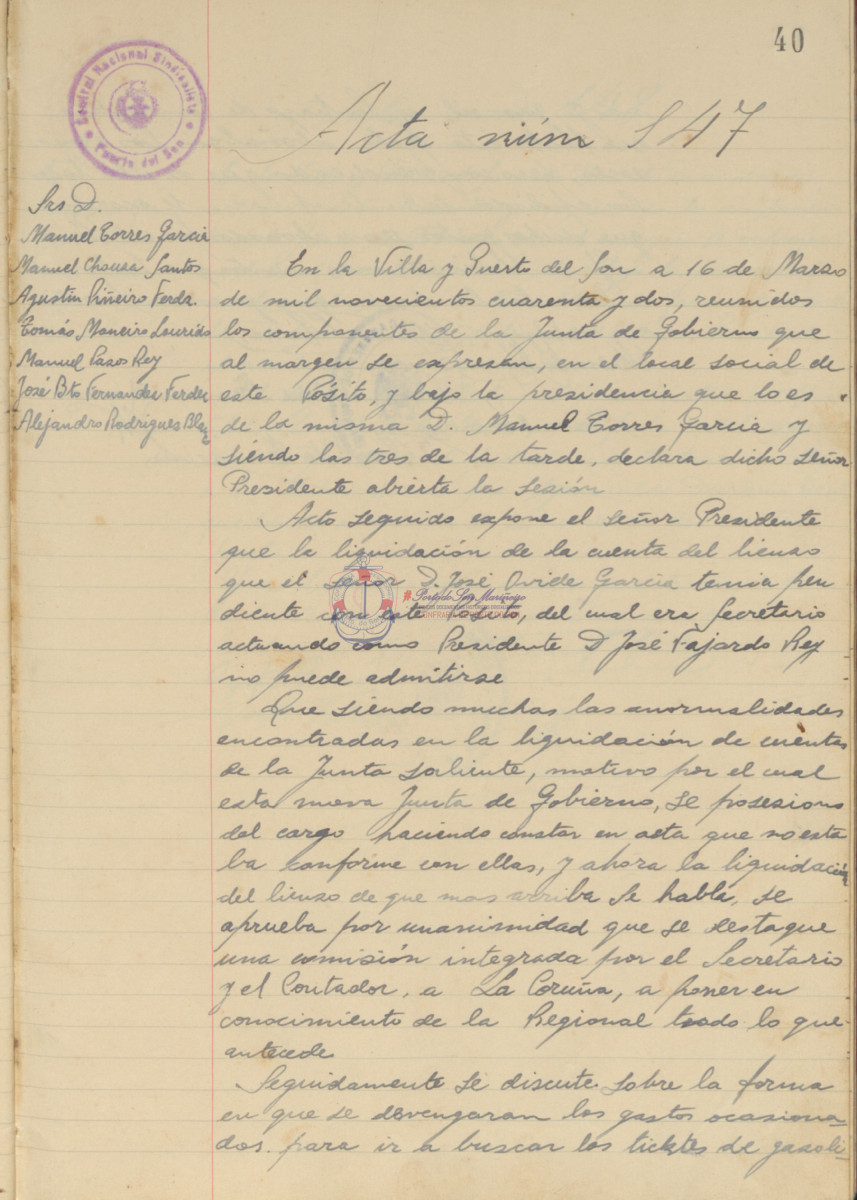 40
Central Nacional Sindicalista
Puerto del Son
Acta núm 147
Srs D.
Manuel Torres Garcia
Manuel Chouza Santos
Agustin Piñeiro Ferdz.
Tomás Maneiro Lourido
Manuel Pazos Rey
José Bto Fernandez Ferdez
Alejandro Rodrigues Blaz
En la Villa y Puerto del Son a 16 de Marzo
de mil novecientos cuarenta y dos, reunidos
los componentes de la Junta de Gobierno que
al margen se expresan, en el local social de
este Pósito, y bajo la presidencia que lo es
de la misma D. Manuel Torres Garcia y
siendo las tres de la tarde, declara dicho señor
Presidente abierta la sesión
Acto seguido expone el señor Presidente
que la liquidación de la cuenta del lienzo
que el señor D. José Ovide Garcia tenia pen
diente con este Posito, del cual era Secretario
actuando como Presidente D José Fajardo Rey
no puede admitirse
Que siendo muchas las anormalidades
encontradas en la liquidación de cuentas
de la Junta saliente, motivo por el cual
esta nueva Junta de Gobierno, se posesiono
del cargo haciendo constar en acta que no esta
ba conforme con ellas, y ahora la liquidación
del lienzo de que mas arriba se habla, se
aprueba por unanimidad que se destaque
una comisión integrada por el Secretario
y el Contador, a La Coruña, a poner en
conocimiento de la Regional todo lo que
antecede
Seguidamente se discute sobre la forma
en que se devengaran los gastos ocasiona-
dos para ir a buscar los tickets de gasoli-
#PortodoSon Mariñeiro